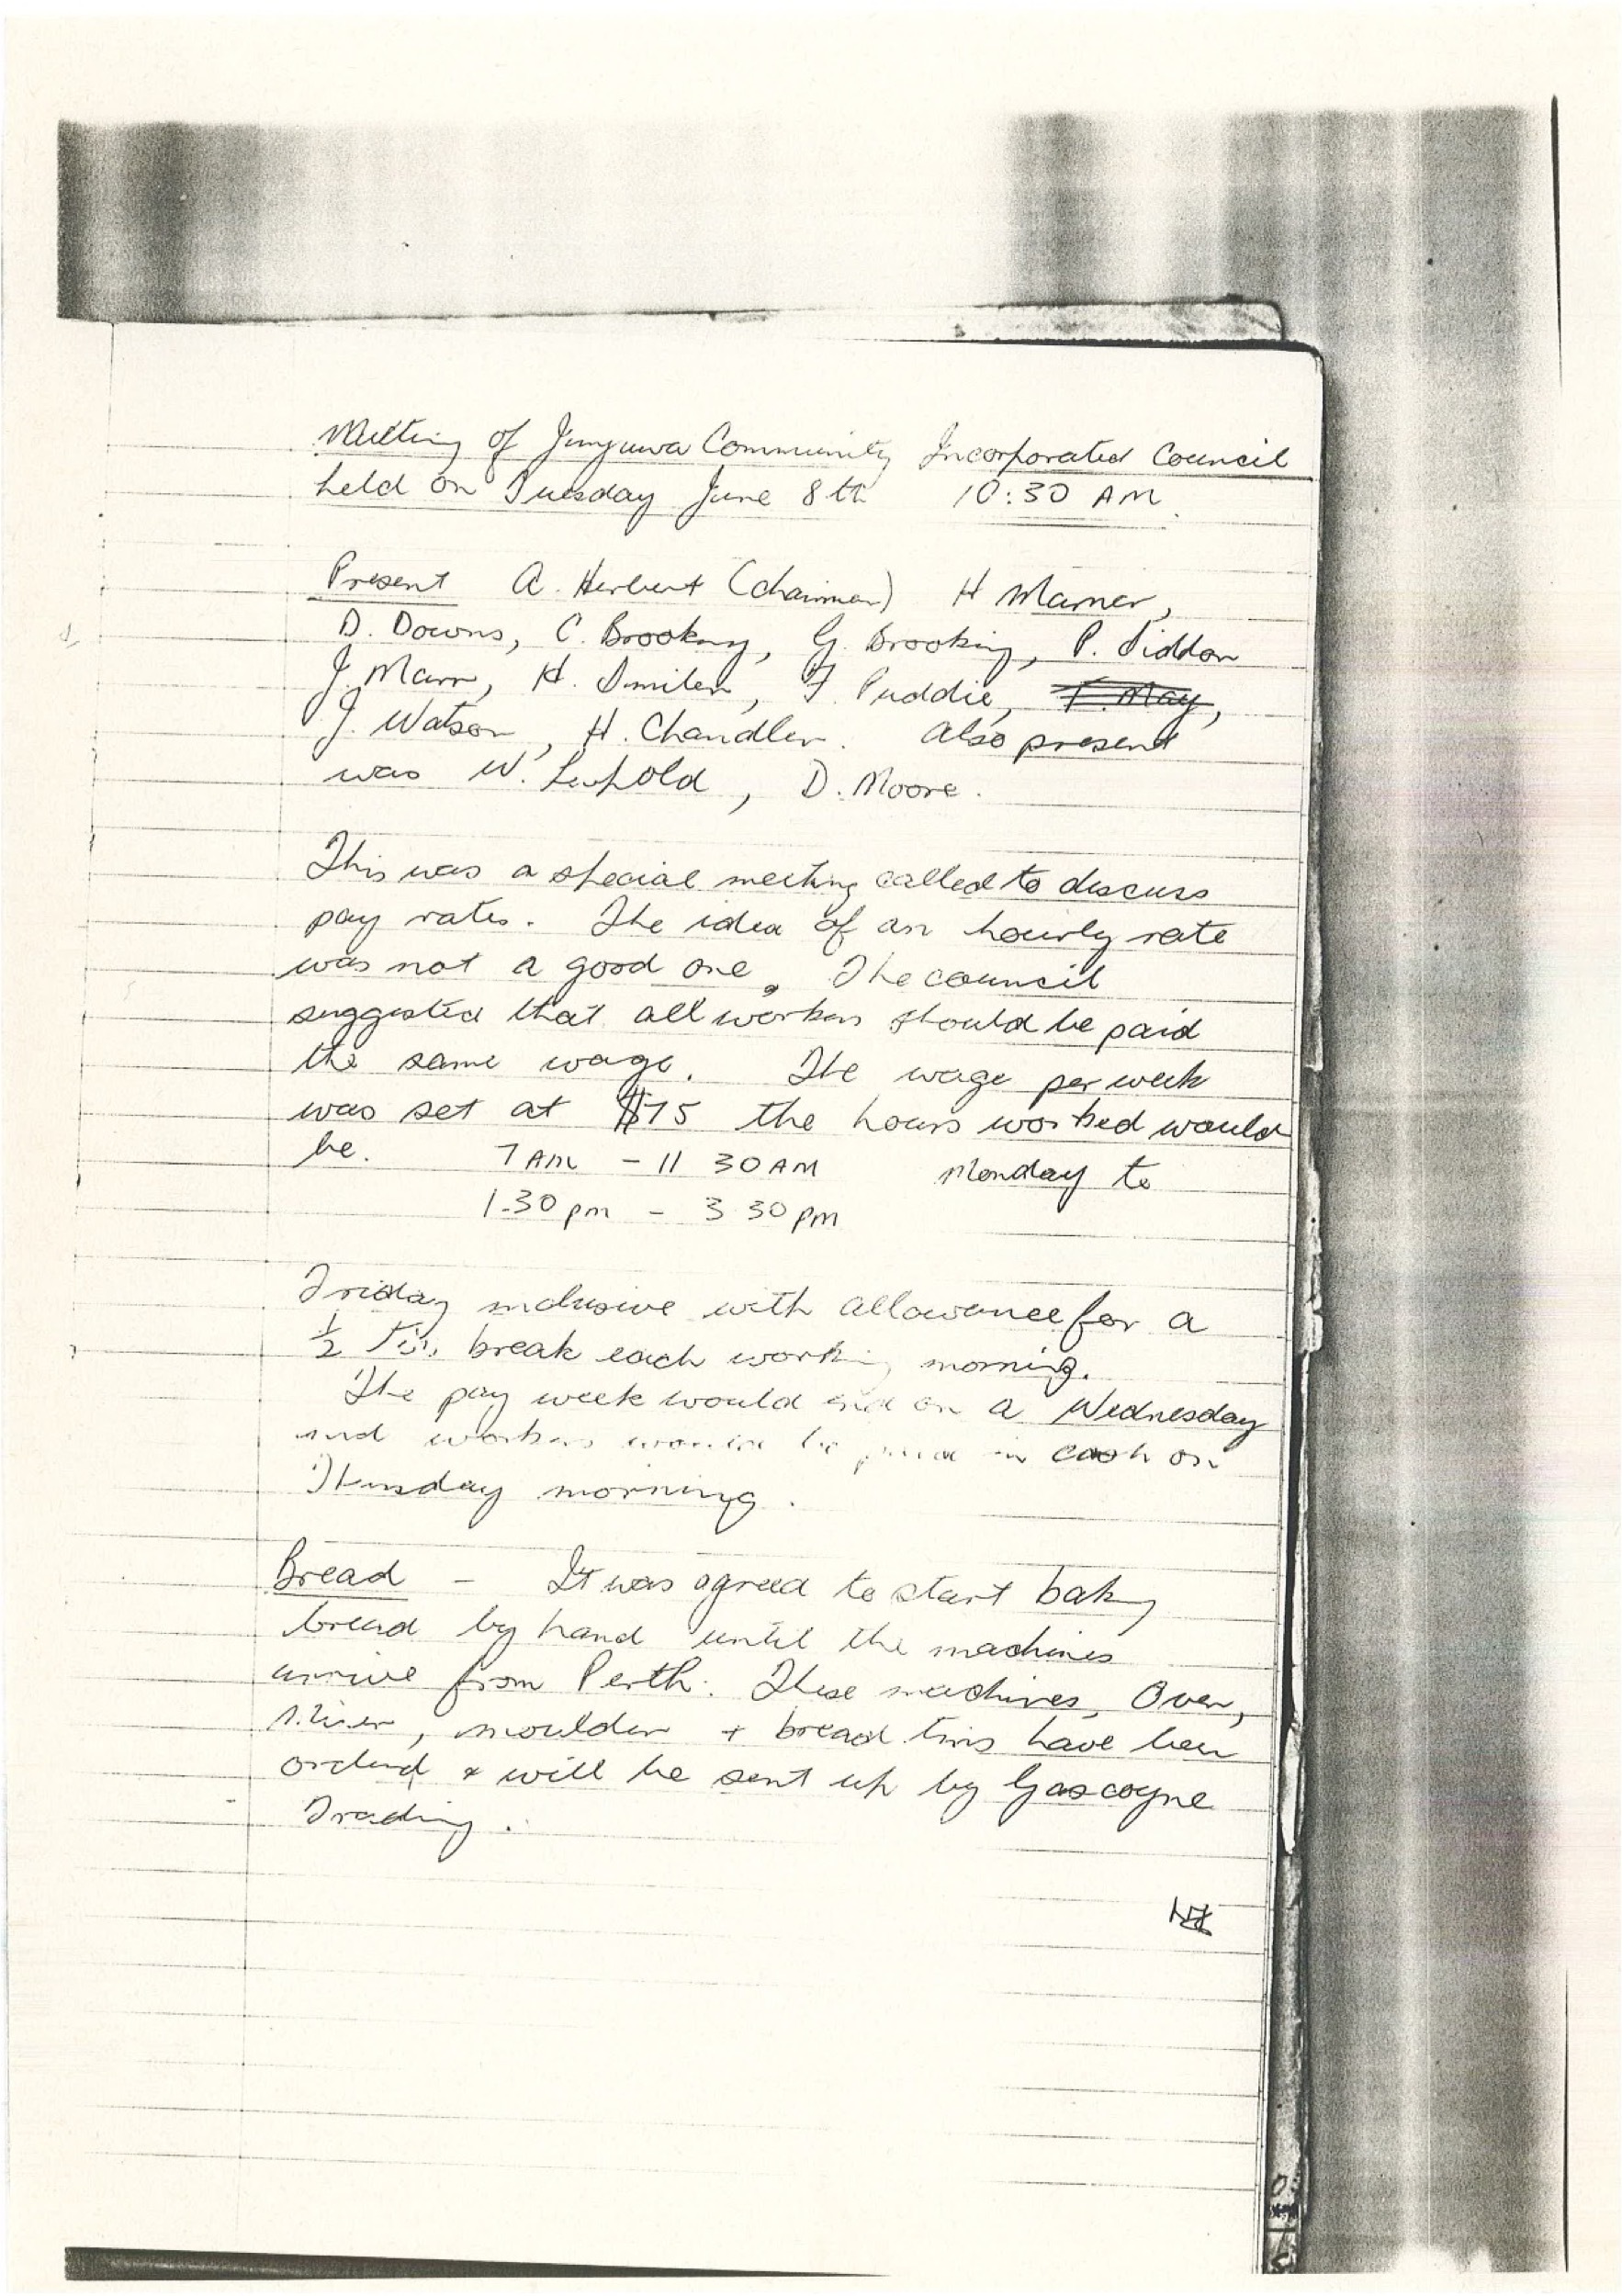 Meeting of Junjuwa Community Incorporated Council
held on Tuesday June 8th 10:30 AM.
Present A. Herbert (chairman) H Marner,
D. Downs, C. Brooking, G. Brooking, P. Siddon
J. Marr, H. Smiler, F. Puddie, T. May,
J. Watson, H. Chandler. Also present
was W. Leopold, D. Moore.
This was a special meeting called to discuss
pay rates. The idea of an hourly rate
was not a good one. The council
suggested that all workers should be paid
the same wage. The wage per week
was set at $75 the hours worked would
be. 7 AM - 11 30 AM Monday to
1.30 pm - 3 30 pm
Friday inclusive with allowance for a
1/2 break each working morning.
The pay week would end on a Wednesday
and workers would be paid in cash on
Thursday morning.
Bread - It was agreed to start baking
bread by hand until the machines
arrive from Perth. These machines, Oven,
mixer, moulder + bread tins have been
ordered & will be sent up by Gascoyne
Trading.